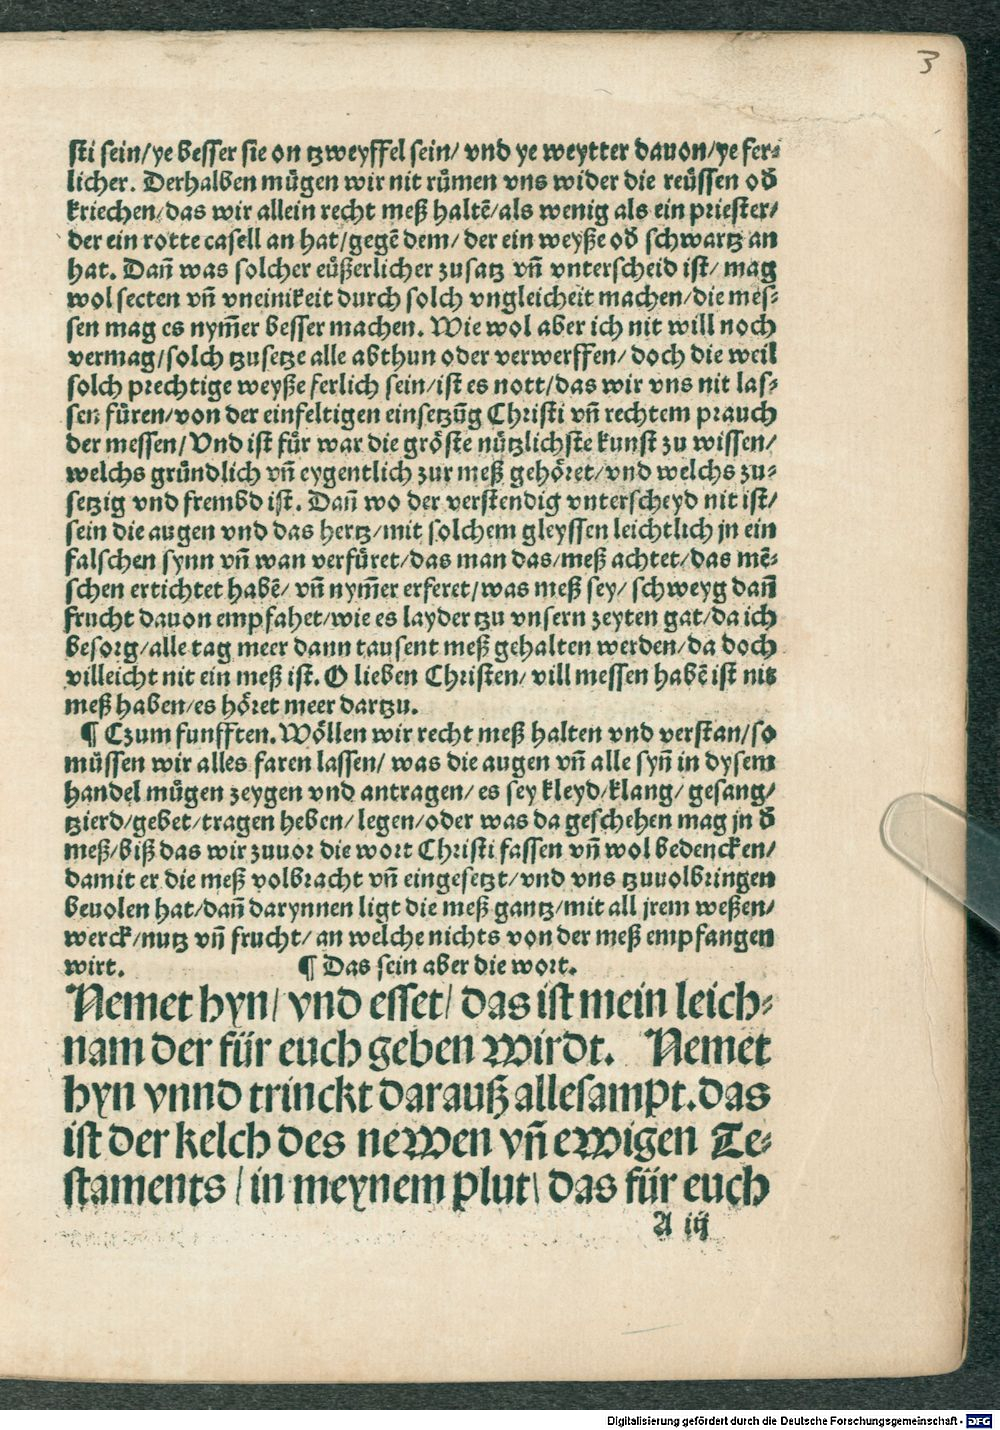 3
sti sein/ye besser sie on tzweyffel sein/ vnd ye weytter dauon/ye fer⸗
licher. Derhalben mügen wir nit rümen vns wider die reüssen oď
kriechen/das wir allein recht meß haltē/als wenig als ein priester/
der ein rotte casell an hat/gegē dem/ der ein weyße oď schwartz an
hat. Dañ was solcher eüßerlicher zusatz vñ vnterscheid ist/ mag
wol secten vñ vneinikeit durch solch vngleicheit machen/die mes⸗
sen mag es nym̃er besser machen. Wie wol aber ich nit will noch
vermag/solch tzusetze alle abthun oder verwerffen/ doch die weil
solch prechtige weyße ferlich sein/ist es nott/das wir vns nit las⸗
sen füren/von der einfeltigen einsetzūg Christi vñ rechtem prauch
der messen/ Vnd ist für war die gröste nützlichste kunst zu wissen/
welchs gründlich vñ eygentlich zur meß gehöret/vnd welchs zu⸗
setzig vnd frembd ist. Dañ wo der verstendig vnterscheyd nit ist/
sein die augen vnd das hertz/mit solchem gleyssen leichtlich jn ein
falschen synn vñ wan verfüret/das man das/meß achtet/das mē⸗
schen ertichtet habē/ vñ nym̃er erferet/was meß sey/ schweyg dañ
frucht dauon empfahet/wie es layder tzu vnsern zeyten gat/da ich
besorg/alle tag meer dann tausent meß gehalten werden/da doch
villeicht nit ein meß ist. O lieben Christen/ vill messen habē ist nit
meß haben/es höret meer dartzu.
¶ Czum funfften. Wöllen wir recht meß halten vnd verstan/so
müssen wir alles faren lassen/ was die augen vñ alle syñ in dysem
handel mügen zeygen vnd antragen/ es sey kleyd/klang/ gesang/
tzierd/gebet/tragen heben/ legen/oder was da geschehen mag jn ď
meß/biß das wir zuuor die wort Christi fassen vñ wol bedencken/
damit er die meß volbracht vñ eingesetzt/vnd vns tzuuolbringen
beuolen hat/dañ darynnen ligt die meß gantz/mit all jrem weßen/
werck/nutz vñ frucht/ an welche nichts von der meß empfangen
wirt. ¶ Das sein aber die wort.
Nemet hyn/ vnd esset/ das ist mein leich⸗
nam der für euch geben wirdt. Nemet
hyn vnnd trinckt darauß allesampt. das
ist der kelch des newen vñ ewigen Te⸗
staments / in meynem plut\ das für euch
A iij
Digitalisierung gefördert durch die Deutsche Forschungsgemeinschaft - DFG